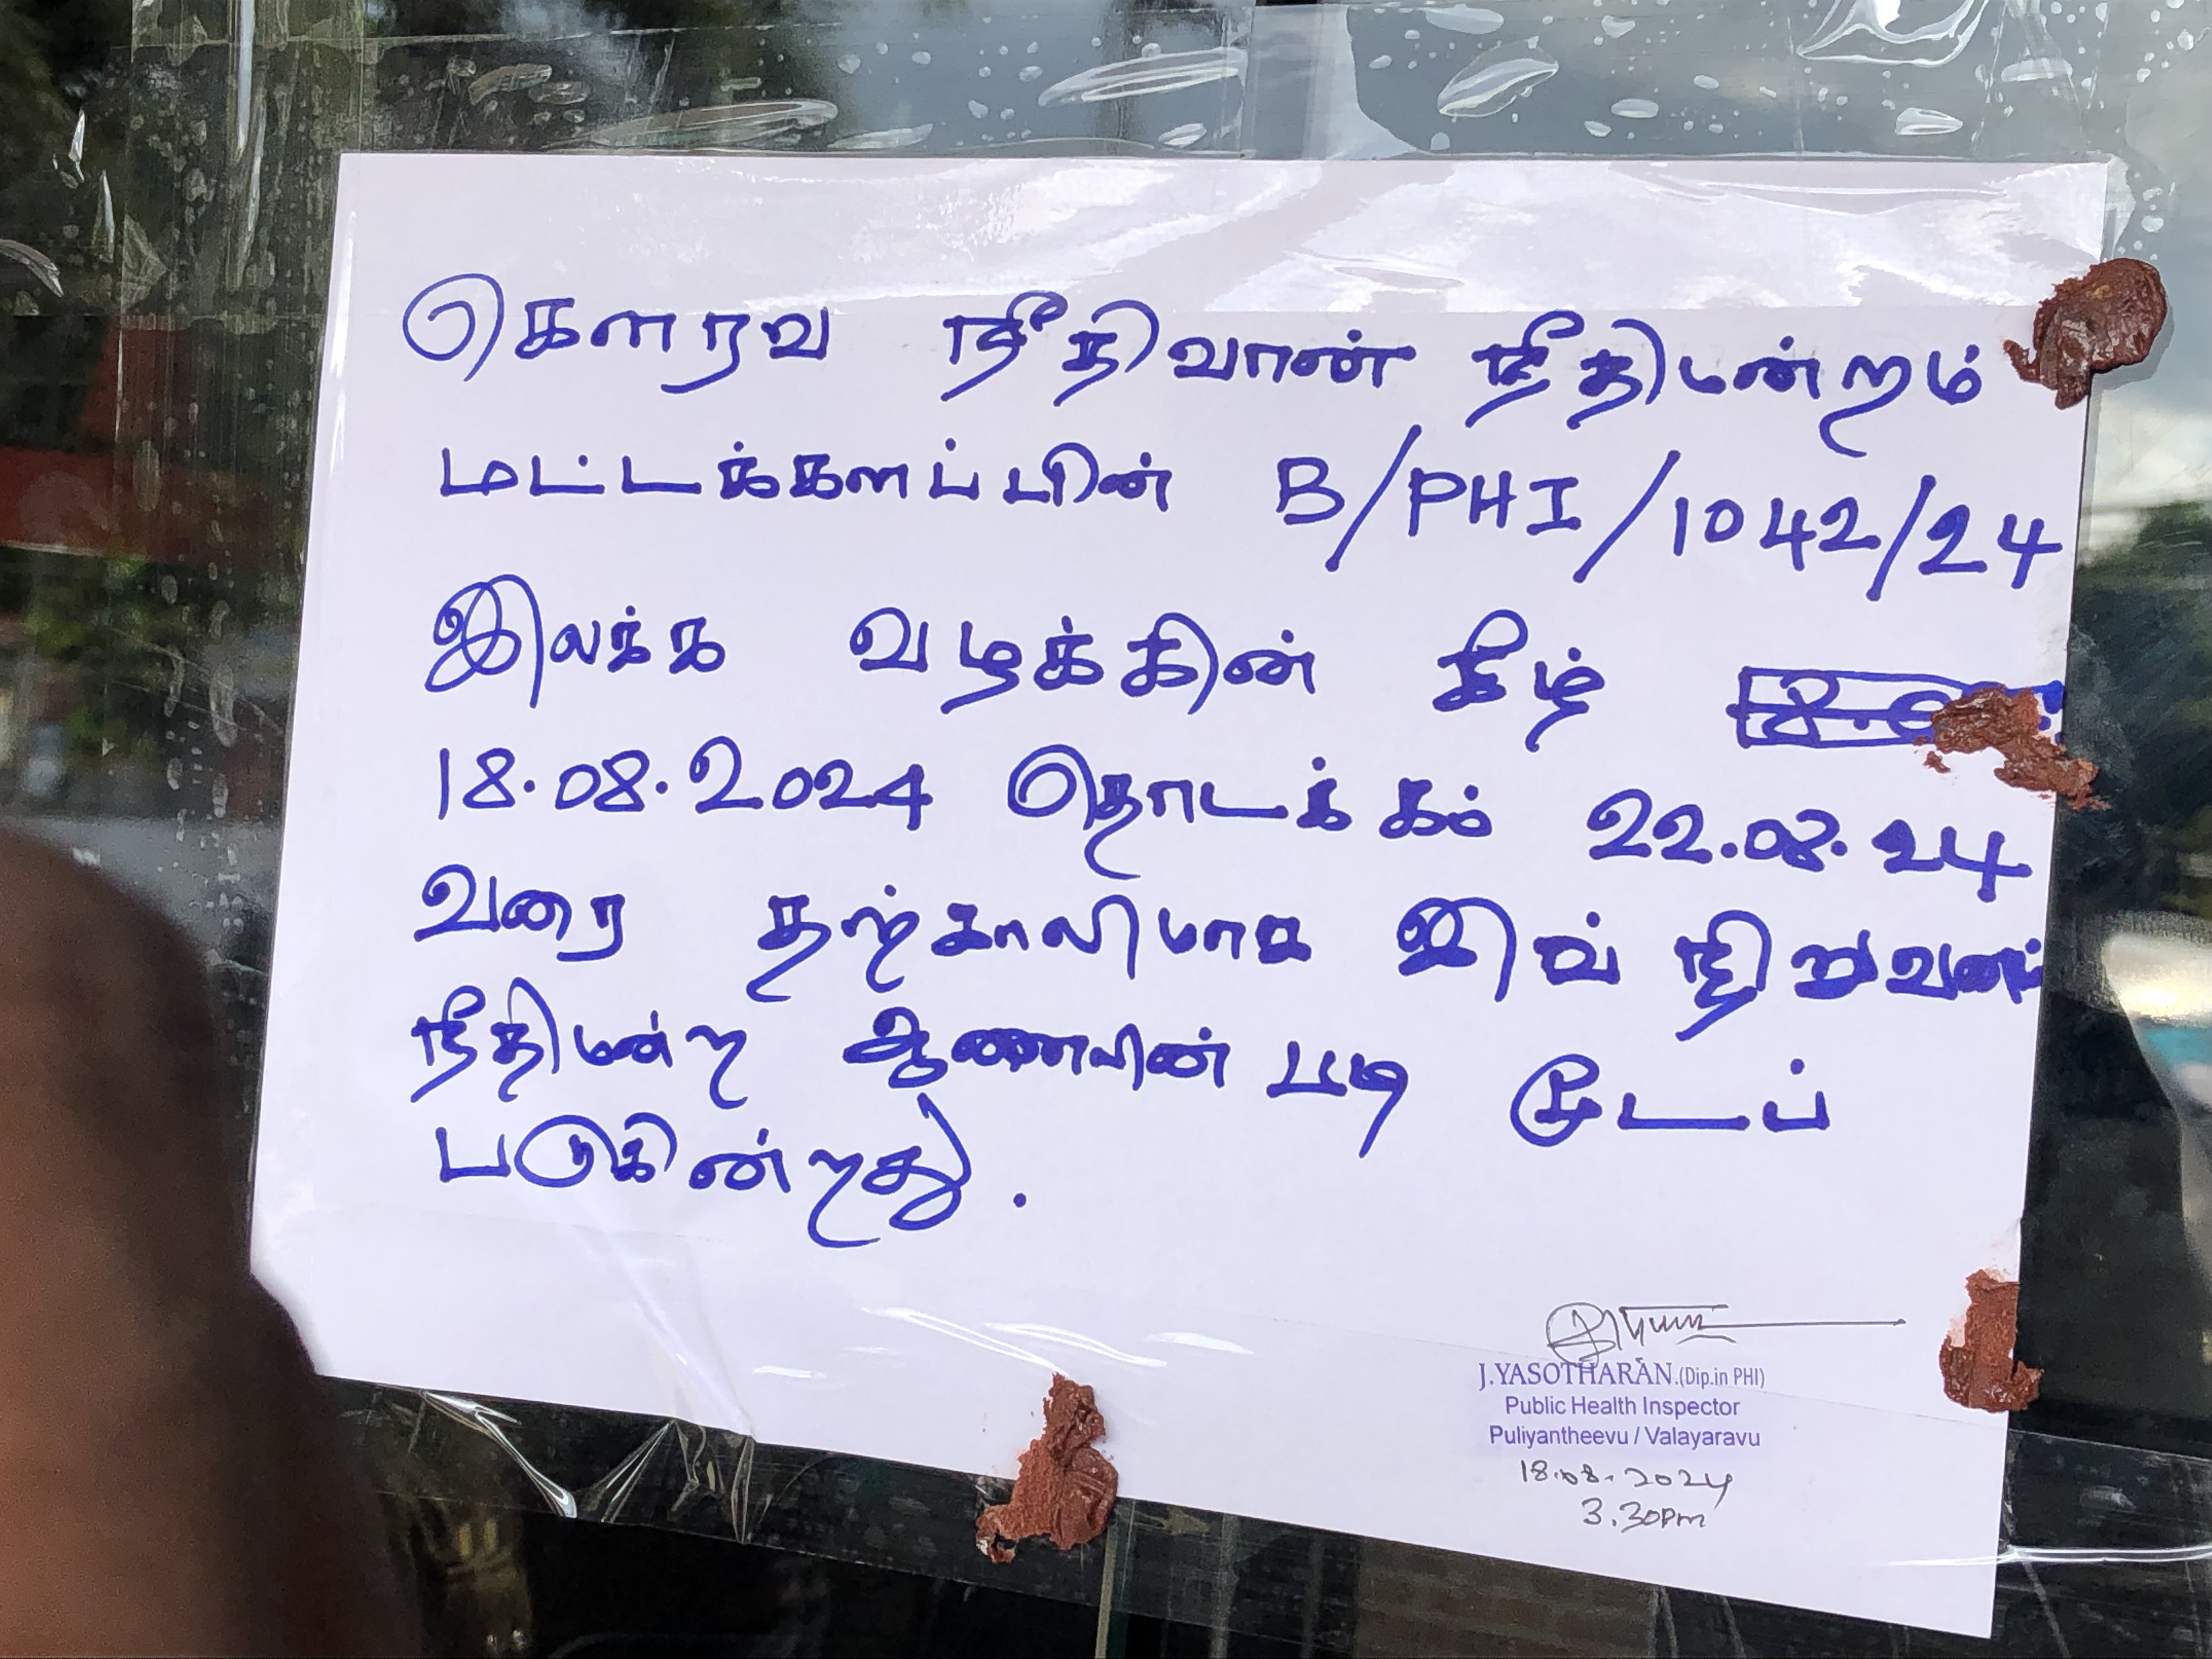 கௌரவ நீதிவான் நீதிமன்றம்
மட்டக்களப்பின் B/PHI/1042/24
இலக்க வழக்கின் கீழ்
18.08.2024 தொடக்கம் 22.08.24
வரை தற்காலிமாக இவ் நிறுவனம்
நீதிமன்ற ஆணையின் படி மூடப்
படுகின்றது.
J.YASOTHARAN.(Dip.in PHI)
Public Health Inspector
Puliyantheevu / Valayaravu
18.08.2024
3.30pm